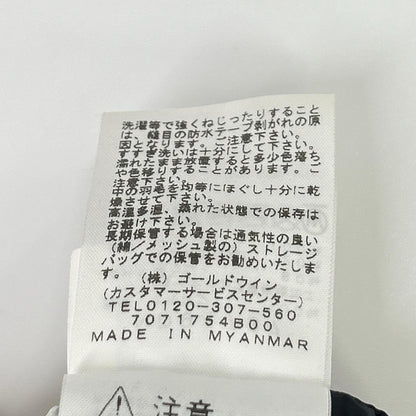 洗濯等で強くねじったりすること
は、縫目の防水テープ剥がれの原
因となります。ご注意下さい。
すすぎ洗いは十分にして下さい。
濡れたまま放置すると多少色落ち
や色移りすることがあります。ご
注意下さい。
中の羽毛を均等にほぐし十分に乾
燥させて下さい。
高温多湿、蒸れた状態での保存は
お避け下さい。
長期保管する場合は通気性の良い
(綿/メッシュ製の)ストレージ
バッグでの保管をお勧めいたしま
す。
(株)ゴールドウイン
(カスタマーサービスセンター)
TEL0120-307-560
7071754B00
MADE IN MYANMAR
注意